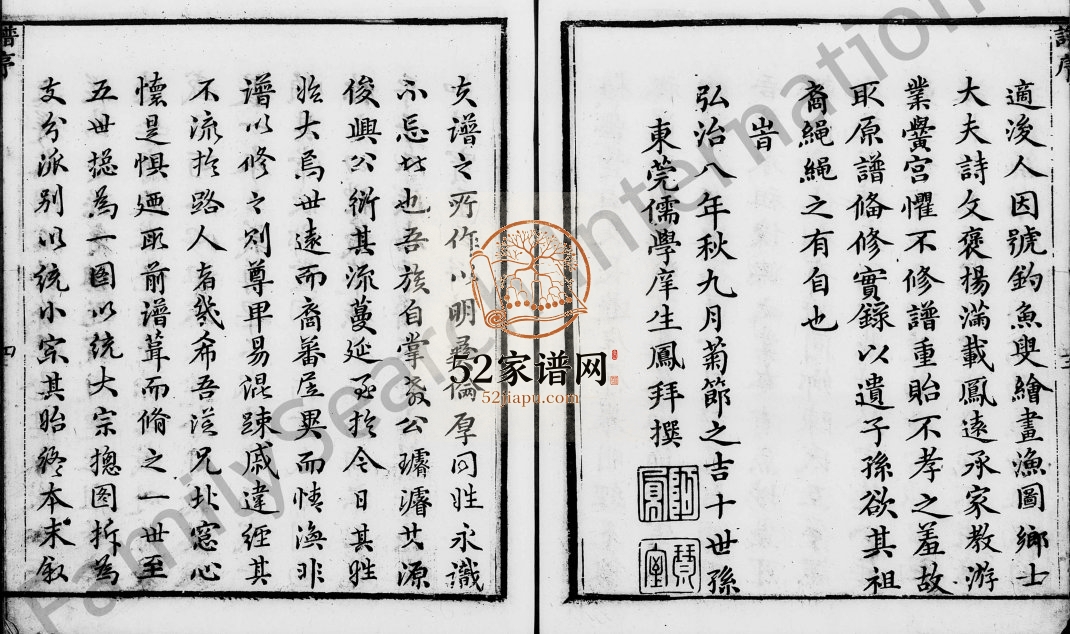 譜序
適浚人因號釣魚叟繪畫漁圖鄉士
大夫詩文褒揚滿載鳳遠承家教游
業黌宮懼不修譜重貽不孝之羞故
取原譜俻修實錄以遺子孫欲其祖
裔繩繩之有自也
旹
弘治八年秋九月菊節之吉十世孫
東莞儒學庠生鳳拜撰
夫譜之所作以明彞倫厚同姓永識
不忘此也吾族自掌教公璿濬其源
俊興公衍其流蔓延至於今日其姓
於大焉世遠而裔蕃居異而情渙非
譜以修之則尊卑易混踈戚違經其
不流於路人者幾希吾從兄北窓心
懷是惧廼取前譜葺而脩之一世至
五世摠為一图以統大宗摠图拆為
支分派别以統小宗其始終本末叙
譜序
四
52家谱网
52jiapu.com
FamilySearch International